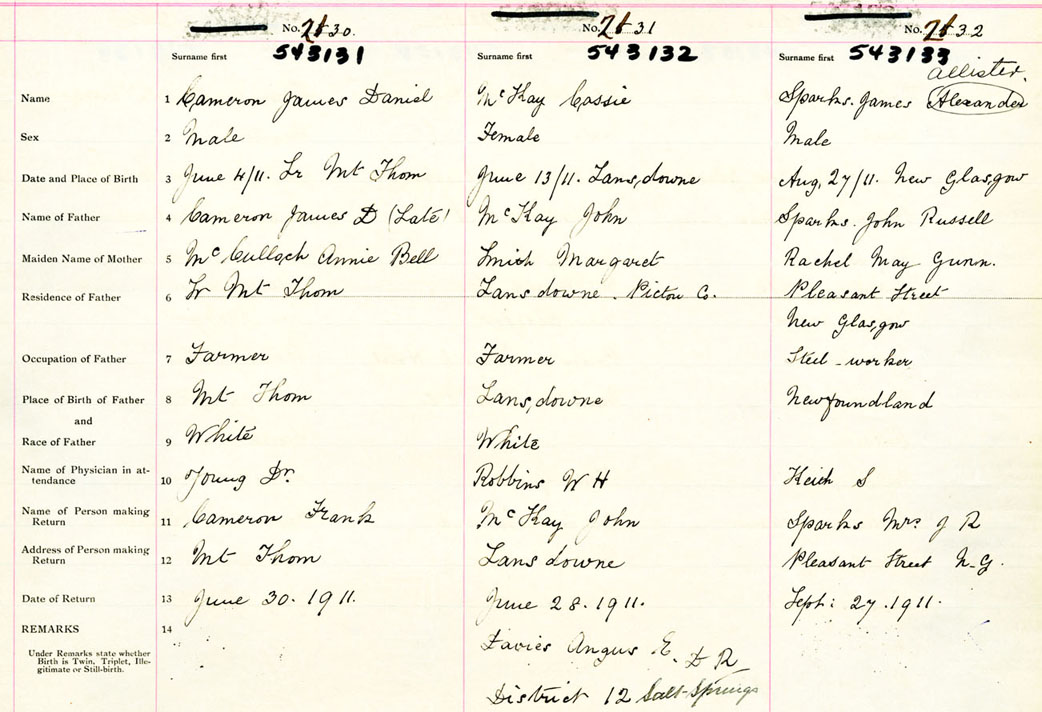 No. 2530. No. 2531 No. 2532
Surname first 543131 Surname first 543132 Surname first 543133
Allister.
Name 1 Cameron James Daniel McKay Cassie Sparks. James Alexander
Sex 2 Male Female Male
Date and Place of Birth 3 June 4/11. Lr Mt Thom June 13/11. Lansdowne Aug, 27/11. New Glasgow
Name of Father 4 Cameron James D (Late) McKay John Sparks. John Russell
Maiden Name of Mother 5 McCulloch Annie Bell Smith Margaret Rachel May Gunn.
Residence of Father 6 Lr Mt Thom Lansdowne. Pictou Co. Pleasant Street
New Glasgow
Occupation of Father 7 Farmer Farmer Steel-worker
Place of Birth of Father 8 Mt Thom Lansdowne Newfoundland
and
Race of Father 9 White White
Name of Physician in at-
tendance 10 Young Dr. Robbins W H Keith S
Name of Person making
Return 11 Cameron Frank McKay John Sparks Mrs J R
Address of Person making
Return 12 Mt Thom Lansdowne Pleasant Street N-G.
Date of Return 13 June 30. 1911. June 28. 1911. Sept: 27. 1911.
REMARKS 14
Under Remarks state whether
Birth is Twin, Triplet, Ille-
gitimate or Still-birth.
Davies Angus E. D R
District 12 Salt-Springs